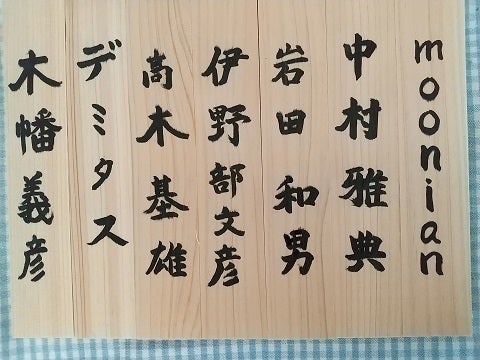 moonian
中村雅典
岩田和男
伊野部文彦
高木基雄
デミタス
木幡義彦